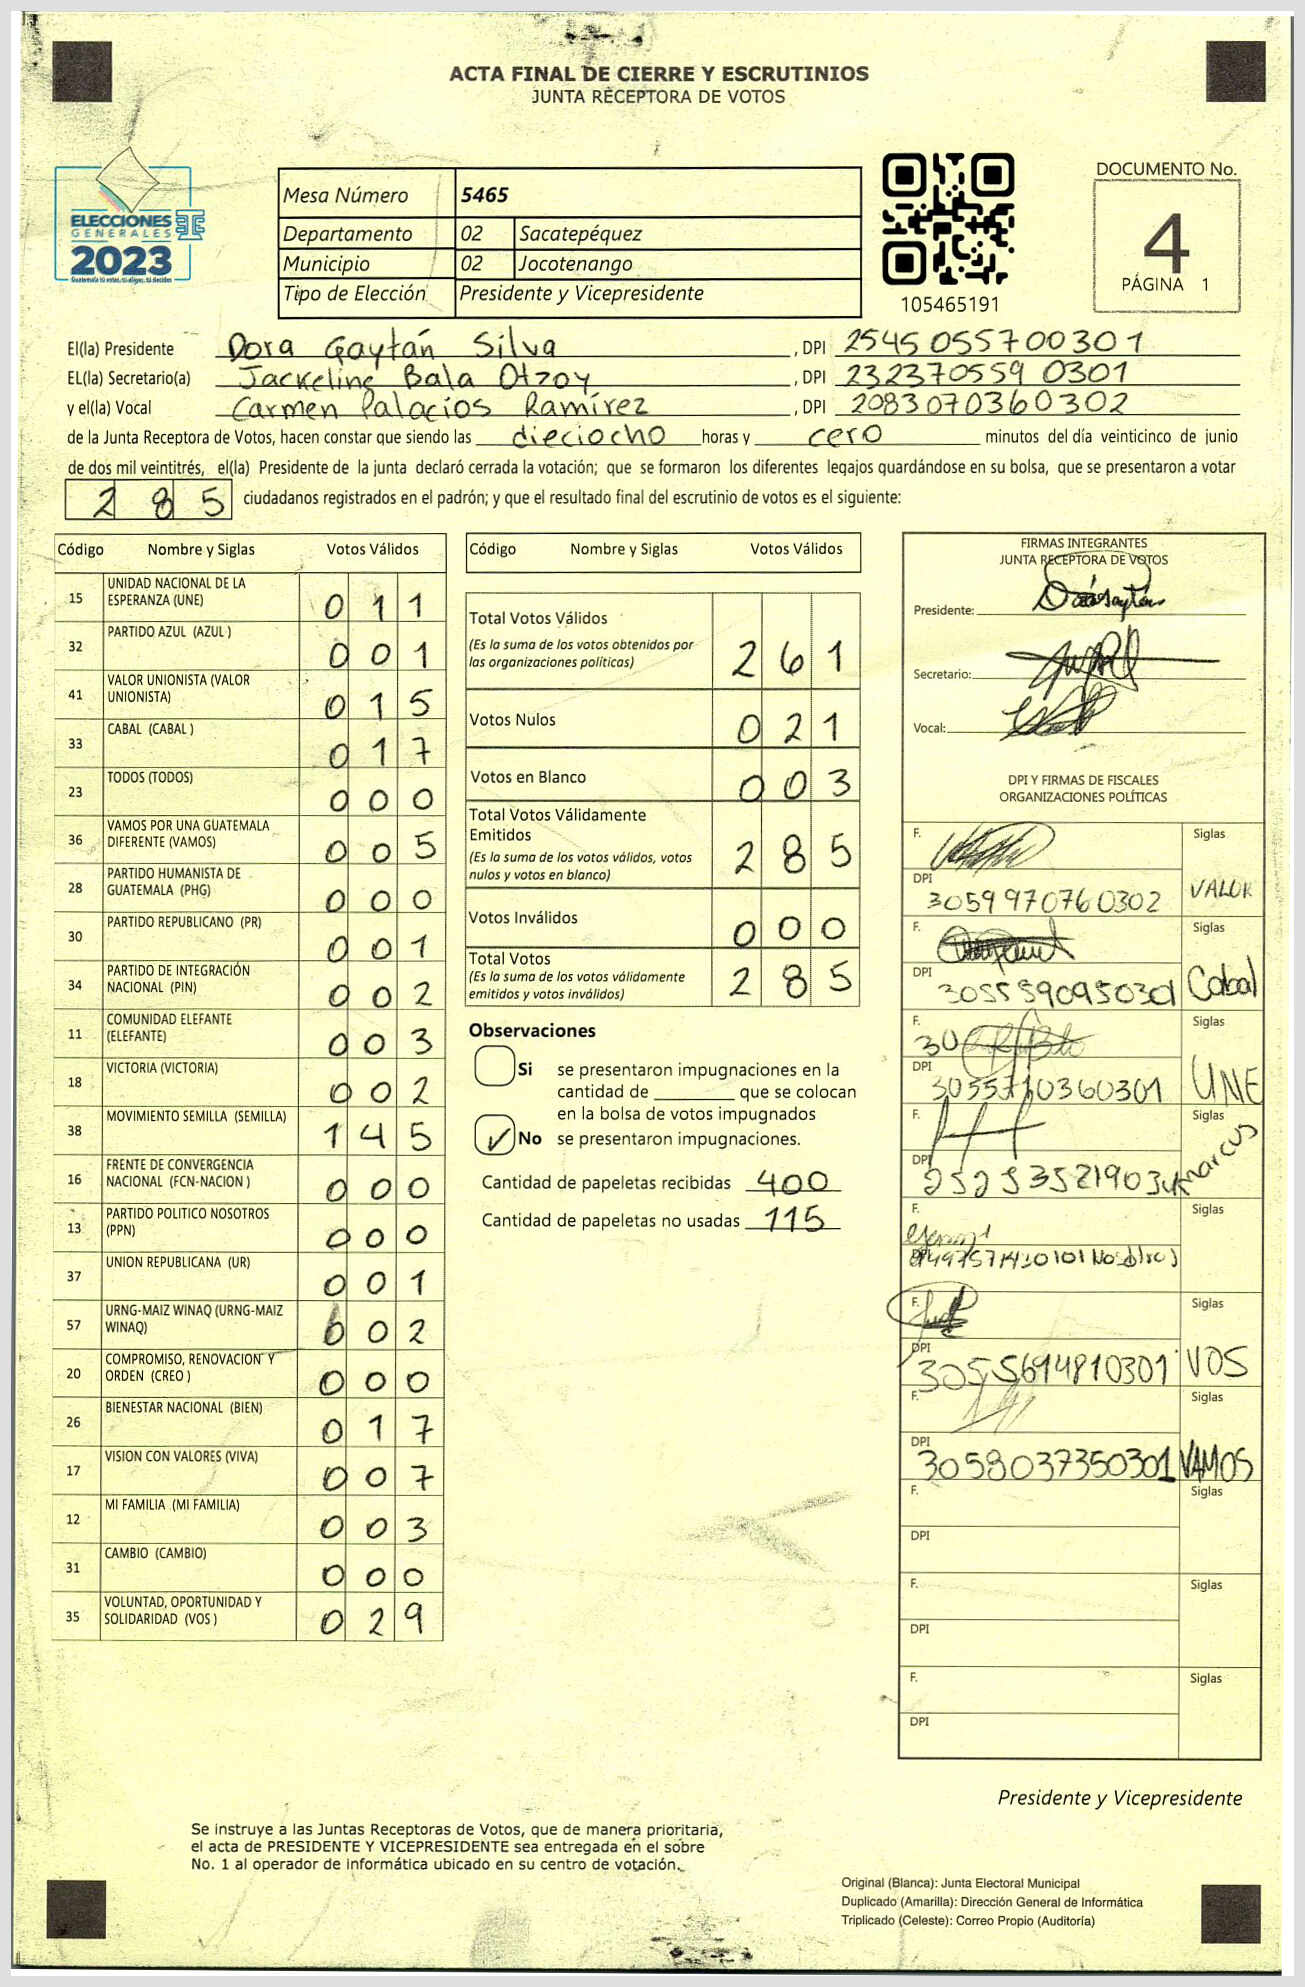 ACTA FINAL DE CIERRE Y ESCRUTINIOS
JUNTA RECEPTORA DE VOTOS
ELECCIONES
GENERALES
2023
Guatemala tú votas, tú eliges, tú decides
Mesa Número 5465
Departamento 02 Sacatepéquez
Municipio 02 Jocotenango
Tipo de Elección Presidente y Vicepresidente
105465191
DOCUMENTO No.
4
PÁGINA 1
El(la) Presidente Dora Gaytán Silva , DPI 2545 05570 0301
EL(la) Secretario(a) Jackeline Bala Otzoy , DPI 232370559 0301
y el(la) Vocal Carmen Palacios Ramírez , DPI 2083070360302
de la Junta Receptora de Votos, hacen constar que siendo las dieciocho horas y cero minutos del día veinticinco de junio
de dos mil veintitrés, el(la) Presidente de la junta declaró cerrada la votación; que se formaron los diferentes legajos guardándose en su bolsa, que se presentaron a votar
285 ciudadanos registrados en el padrón; y que el resultado final del escrutinio de votos es el siguiente:
Código Nombre y Siglas Votos Válidos
15 UNIDAD NACIONAL DE LA ESPERANZA (UNE) 011
32 PARTIDO AZUL (AZUL ) 001
41 VALOR UNIONISTA (VALOR UNIONISTA) 015
33 CABAL (CABAL ) 017
23 TODOS (TODOS) 000
36 VAMOS POR UNA GUATEMALA DIFERENTE (VAMOS) 005
28 PARTIDO HUMANISTA DE GUATEMALA (PHG) 000
30 PARTIDO REPUBLICANO (PR) 001
34 PARTIDO DE INTEGRACIÓN NACIONAL (PIN) 002
11 COMUNIDAD ELEFANTE (ELEFANTE) 003
18 VICTORIA (VICTORIA) 002
38 MOVIMIENTO SEMILLA (SEMILLA) 145
16 FRENTE DE CONVERGENCIA NACIONAL (FCN-NACION ) 000
13 PARTIDO POLITICO NOSOTROS (PPN) 000
37 UNION REPUBLICANA (UR) 001
57 URNG-MAIZ WINAQ (URNG-MAIZ WINAQ) 002
20 COMPROMISO, RENOVACION Y ORDEN (CREO ) 000
26 BIENESTAR NACIONAL (BIEN) 017
17 VISION CON VALORES (VIVA) 007
12 MI FAMILIA (MI FAMILIA) 003
31 CAMBIO (CAMBIO) 000
35 VOLUNTAD, OPORTUNIDAD Y SOLIDARIDAD (VOS ) 029
Código Nombre y Siglas Votos Válidos
Total Votos Válidos
(Es la suma de los votos obtenidos por
las organizaciones políticas) 261
Votos Nulos 021
Votos en Blanco 003
Total Votos Válidamente
Emitidos
(Es la suma de los votos válidos, votos
nulos y votos en blanco) 285
Votos Inválidos 000
Total Votos
(Es la suma de los votos válidamente
emitidos y votos inválidos) 285
Observaciones
Si se presentaron impugnaciones en la
cantidad de ________ que se colocan
en la bolsa de votos impugnados
✓ No se presentaron impugnaciones.
Cantidad de papeletas recibidas 400
Cantidad de papeletas no usadas 115
FIRMAS INTEGRANTES
JUNTA RECEPTORA DE VOTOS
Presidente:
Secretario:
Vocal:
DPI Y FIRMAS DE FISCALES
ORGANIZACIONES POLÍTICAS
F. Siglas
DPI 3059970760302 VALOR
F. Siglas
DPI 3055590950301 Cabal
F. Siglas
DPI 3055710360301 UNE
F. Siglas
DPI
F. Siglas
DPI
F. Siglas
DPI 3055614810301 VOS
F. Siglas
DPI 3058037350301 VAMOS
F. Siglas
DPI
F. Siglas
DPI
F. Siglas
DPI
Presidente y Vicepresidente
Se instruye a las Juntas Receptoras de Votos, que de manera prioritaria,
el acta de PRESIDENTE Y VICEPRESIDENTE sea entregada en el sobre
No. 1 al operador de informática ubicado en su centro de votación.
Original (Blanca): Junta Electoral Municipal
Duplicado (Amarilla): Dirección General de Informática
Triplicado (Celeste): Correo Propio (Auditoría)